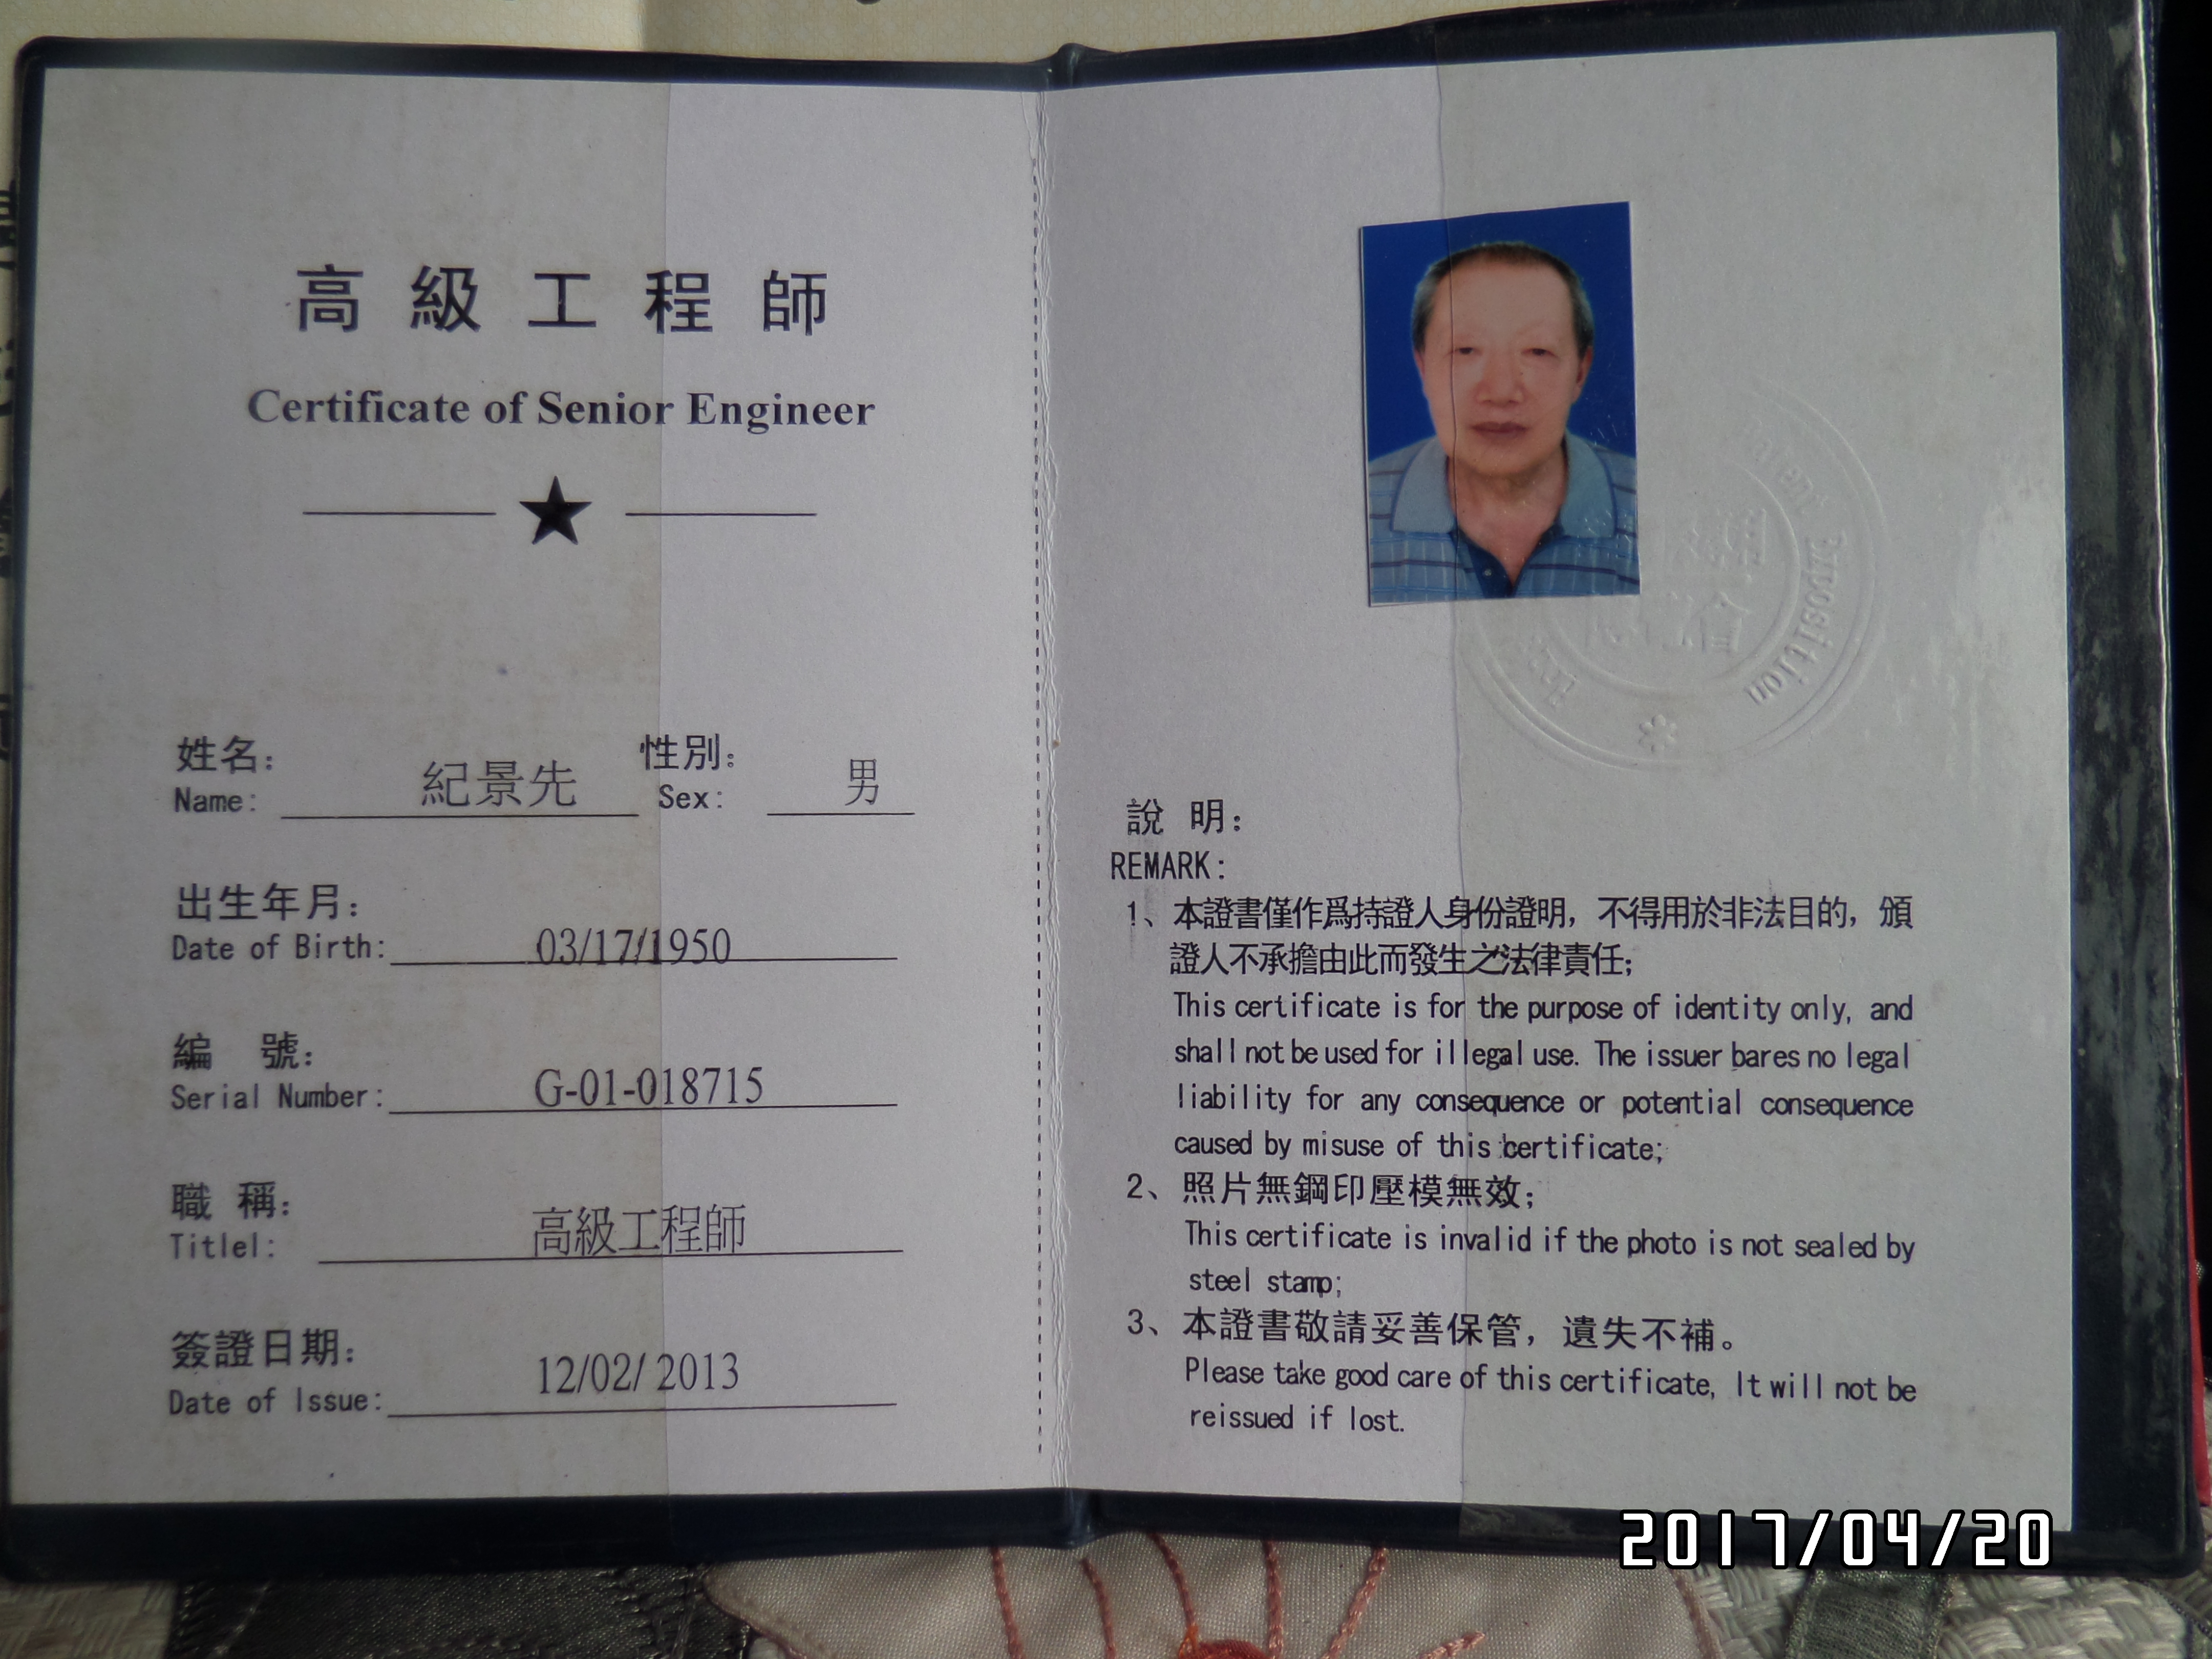 高級工程師
Certificate of Senior Engineer
姓名： 紀景先 性別： 男
Name: Sex:
出生年月：
Date of Birth: 03/17/1950
編 號：
Serial Number: G-01-018715
職 稱：
Titlel: 高級工程師
簽證日期：
Date of Issue: 12/02/ 2013
Patent Exposition
說 明：
REMARK:
1、本證書僅作爲持證人身份證明，不得用於非法目的，頒
證人不承擔由此而發生之法律責任；
This certificate is for the purpose of identity only, and
shall not be used for illegal use. The issuer bares no legal
liability for any consequence or potential consequence
caused by misuse of this certificate;
2、照片無鋼印壓模無效；
This certificate is invalid if the photo is not sealed by
steel stamp;
3、本證書敬請妥善保管，遺失不補。
Please take good care of this certificate, It will not be
reissued if lost.
2017/04/20